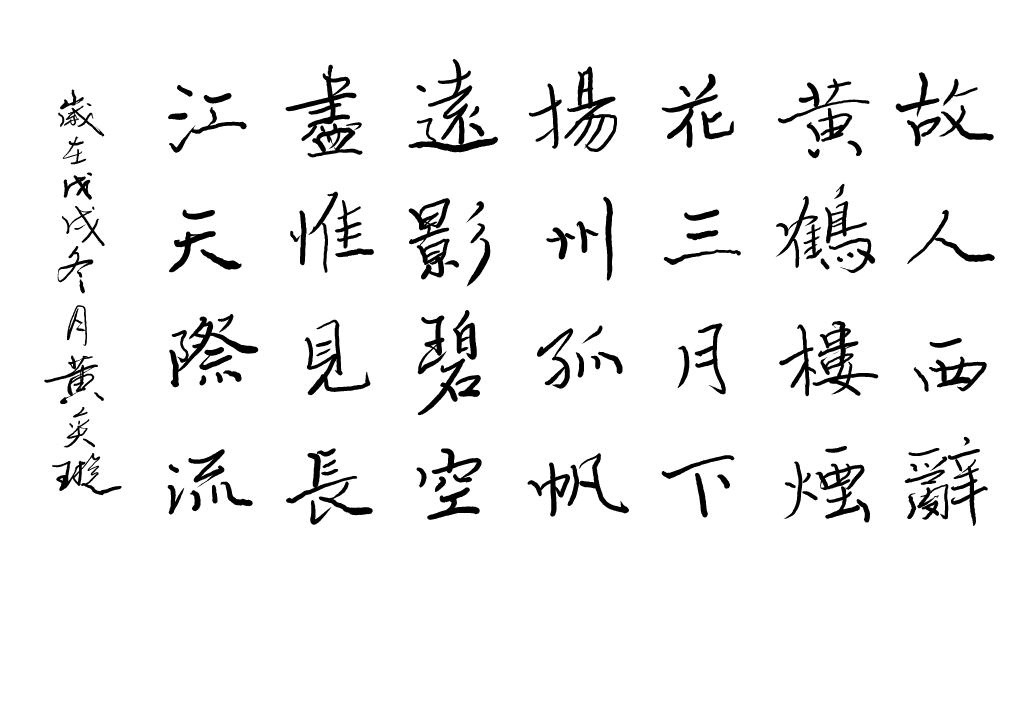 故人西辭
黄鶴樓煙
花三月下
揚州孤帆
遠影碧空
盡惟見長
江天際流
歲在戊戌冬月黄英璇